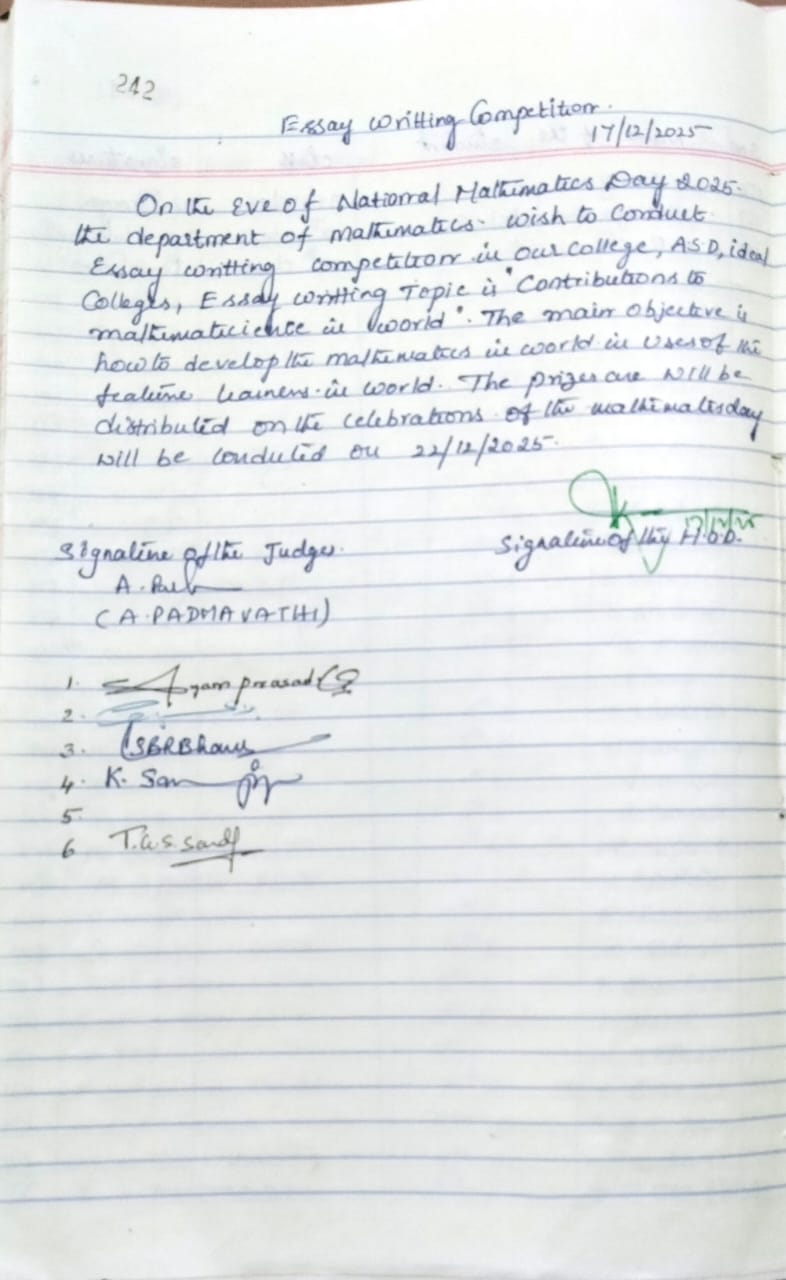 242
Essay writting Competition.
17/12/2025
On the Eve of National Mathematics Day 2025.
the department of mathematics. wish to conduct
Essay writting competition in our college, A.S.D, ideal
Colleges, Essay writting Topic is "Contributions to
mathematicience in world". The main objective is
how to develop the mathematics in world in uses of the
feature learners in world. The prizes are will be
distributed on the celebrations of the mathematisday
will be conduted on 22/12/2025.
17/12/25
Signature of the Judges.
Signature of the H.O.D.
(A. PADMAVATHI)
1.
2.
3.
4. K.
5.
6